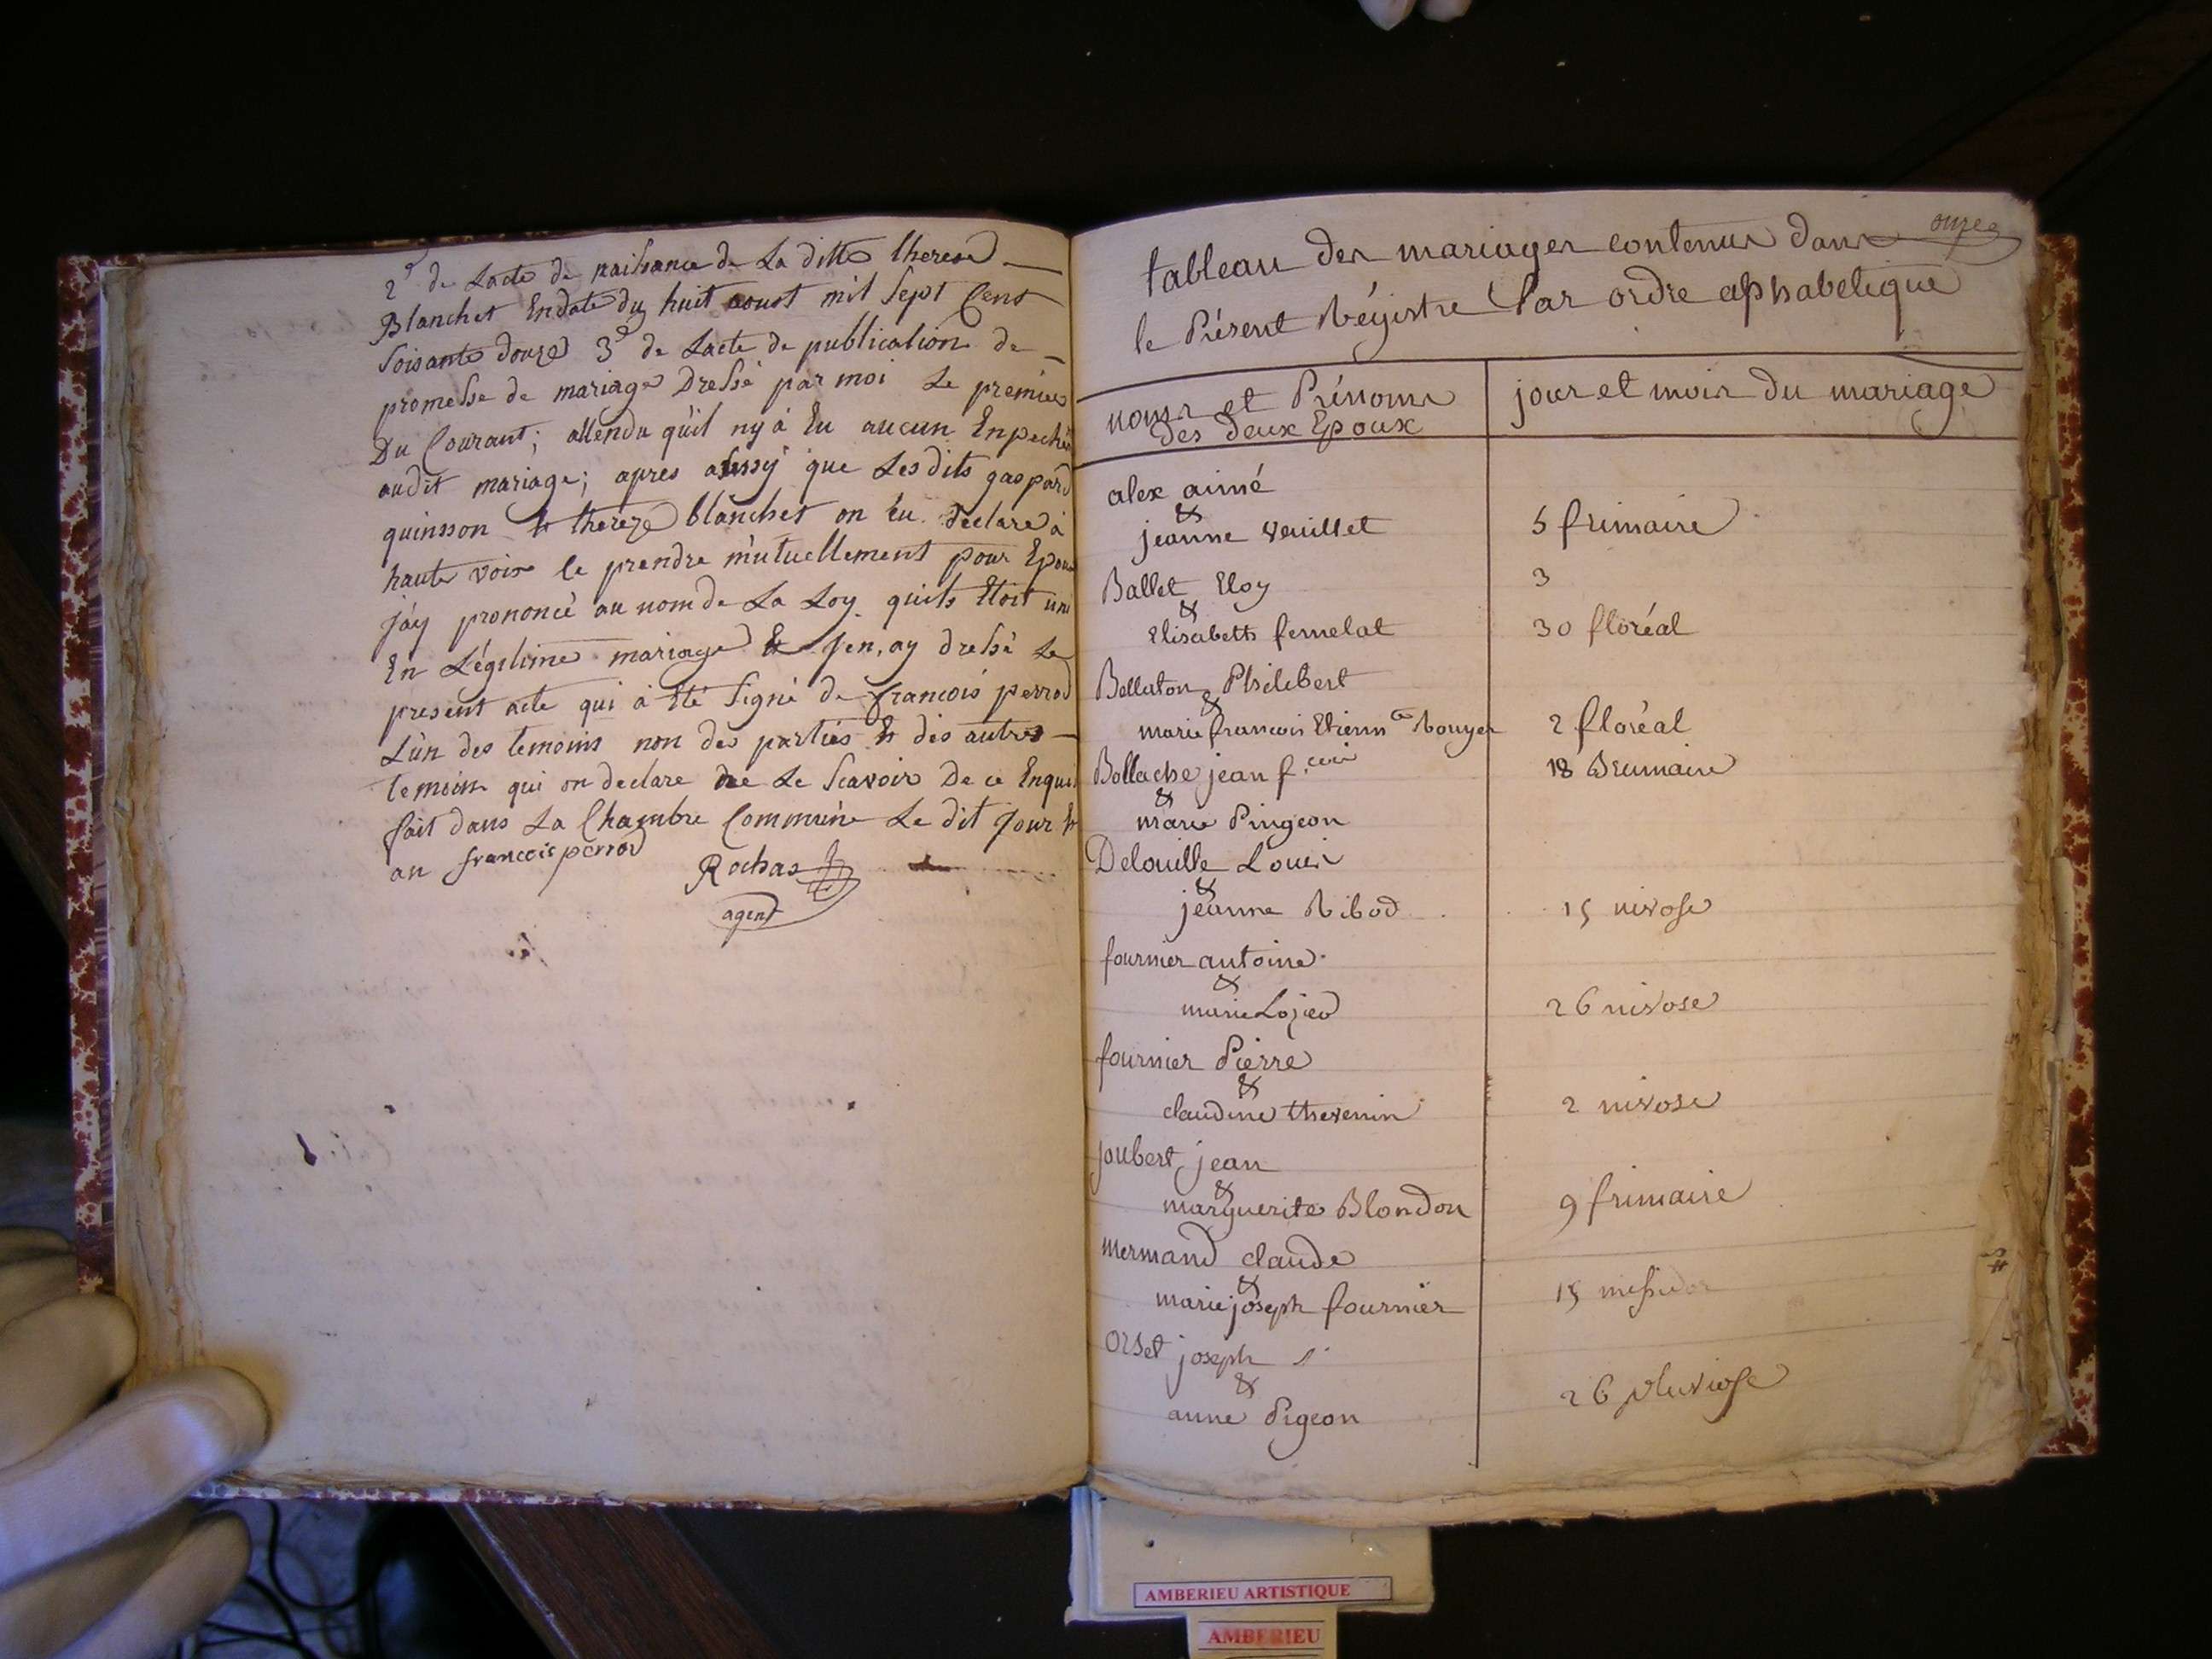 2° de Lacte de naissance de La ditte therese
Blanchet En date du huit aoust mil Sept Cent
Soisante douze 3° de Lacte de publication de
promesse de mariage Dressé par moi Le premier
Du Courant; attendu qu'il ny à Eu aucun Enpeché
audit mariage; apres aussy que Lesdits gaspard
quinsson & thereze blanchet on Eu declaré à
haute voix se prendre mutuellement pour Epoux
j'ay prononcé au nom de La Loy quils Etoit uni
En Légitime mariage & jen, ay dressé Le
present acte qui à Eté Signé de francois perrod
L'un des temoins non des parties & des autres
temoins qui on declare ne Le Scavoir De ce Enquis
fait dans La Chambre Commune Le dit jour &
an francois perrod
Rochas
agent
onze
tableau des mariages contenus dans
le Présent Régistre Par ordre alphabetique
noms et Prénoms
des deux Epoux
jour et mois du mariage
alex aimé
&
jeanne Veuillet 5 frimaire
Ballet Eloy 3
&
Elisabeth fernelat 30 floréal
Bellaton Philibert
&
marie francois Etienn te Rouyer 2 floréal
Bollache jean f.cois 18 Brumaire
&
marie Pingeon
Delouille Louis
&
jeanne Ribod 15 nivose
fournier antoine
&
marie 26 nivose
fournier Pierre
&
claudine thevenin 2 nivose
joubert jean
&
marguerite Blondon 9 frimaire
mermand claude
&
marie joseph fournier 15 messidor
Orset joseph
&
anne Pigeon 26 pluviose
AMBERIEU ARTISTIQUE
AMBERIEU